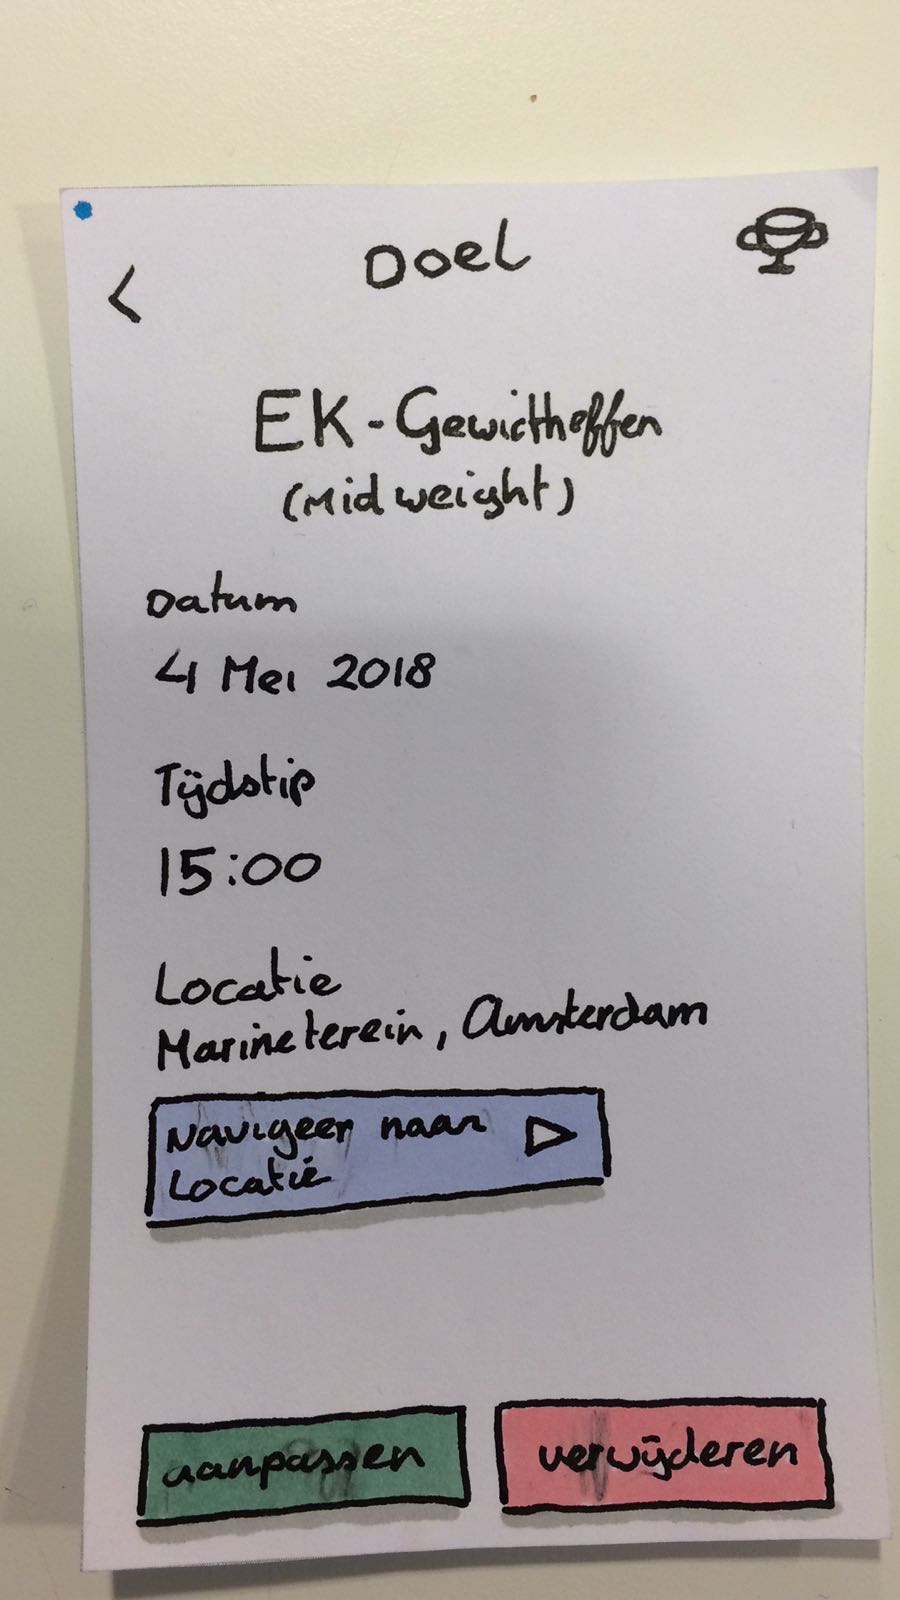 <
Doel
EK-Gewichtheffen
(Midweight)
Datum
4 Mei 2018
Tijdstip
15:00
Locatie
Marineterein, Amsterdam
Navigeer naar
Locatie
aanpassen
verwijderen